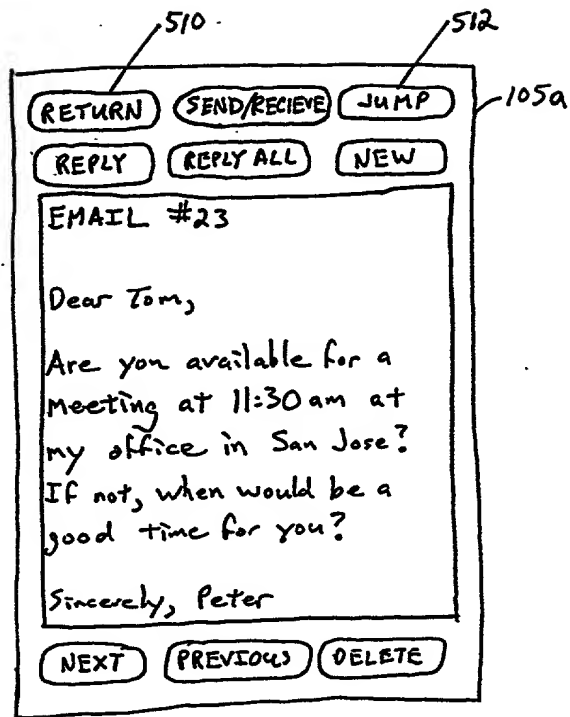 510 512
RETURN SEND/RECIEVE JUMP 105a
REPLY REPLY ALL NEW
EMAIL #23
Dear Tom,
Are you available for a
meeting at 11:30 am at
my office in San Jose?
If not, when would be a
good time for you?
Sincerely, Peter
NEXT PREVIOUS DELETE